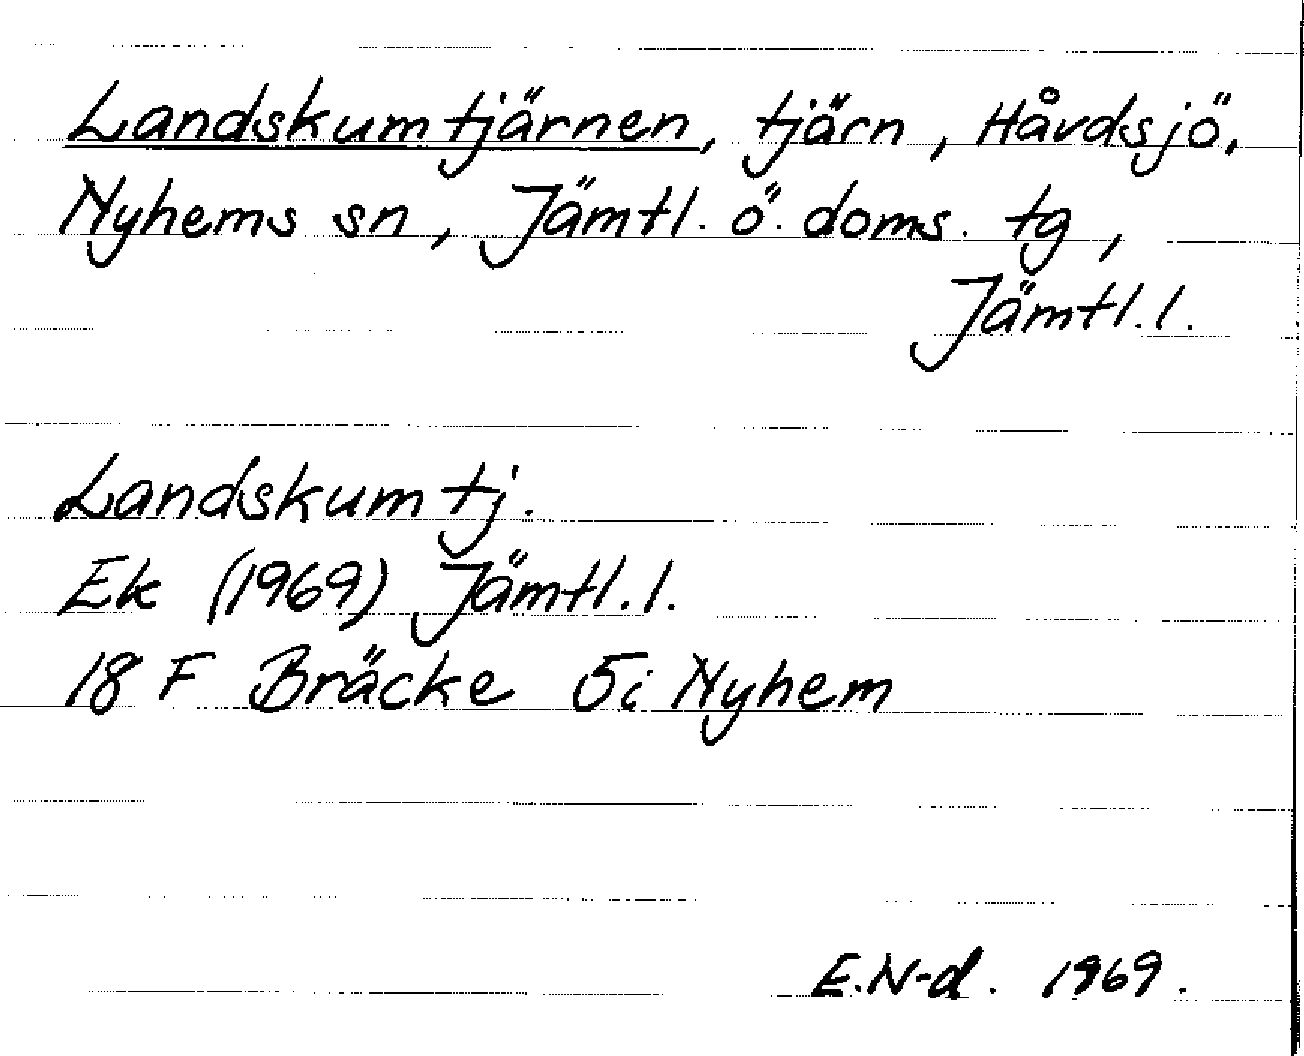 Landskumtjärnen, tjärn, Håvdsjö,
Nyhems sn, Jämtl. ö. doms. tg,
Jämtl.l.
Landskumtj.
Ek (1969) Jämtl.l.
18 F Bräcke 5i Nyhem
E.N-d. 1969.